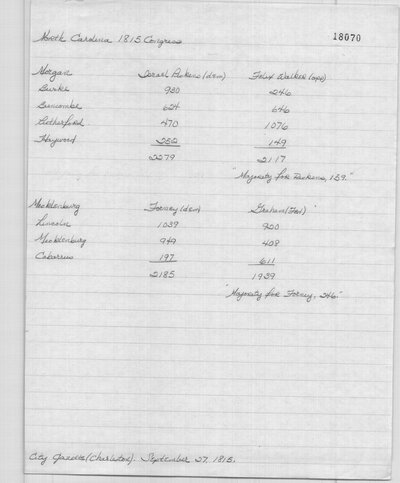 North Carolina 1815 Congress
18070
Morgan Israel Pickens (dem) Felix Walker (opp)
Burke 980 246
Buncombe 624 646
Rutherford 470 1076
Haywood 149
2279 2117
"Majority for Pickens, 159."
Mecklenburg Forney (dem) Graham (Fed)
Lincoln 1039 920
Mecklenburg 949 408
Cabarrus 197 611
2185 1939
"Majority for Forney, 246."
City Gazette (Charleston). September 27, 1815.